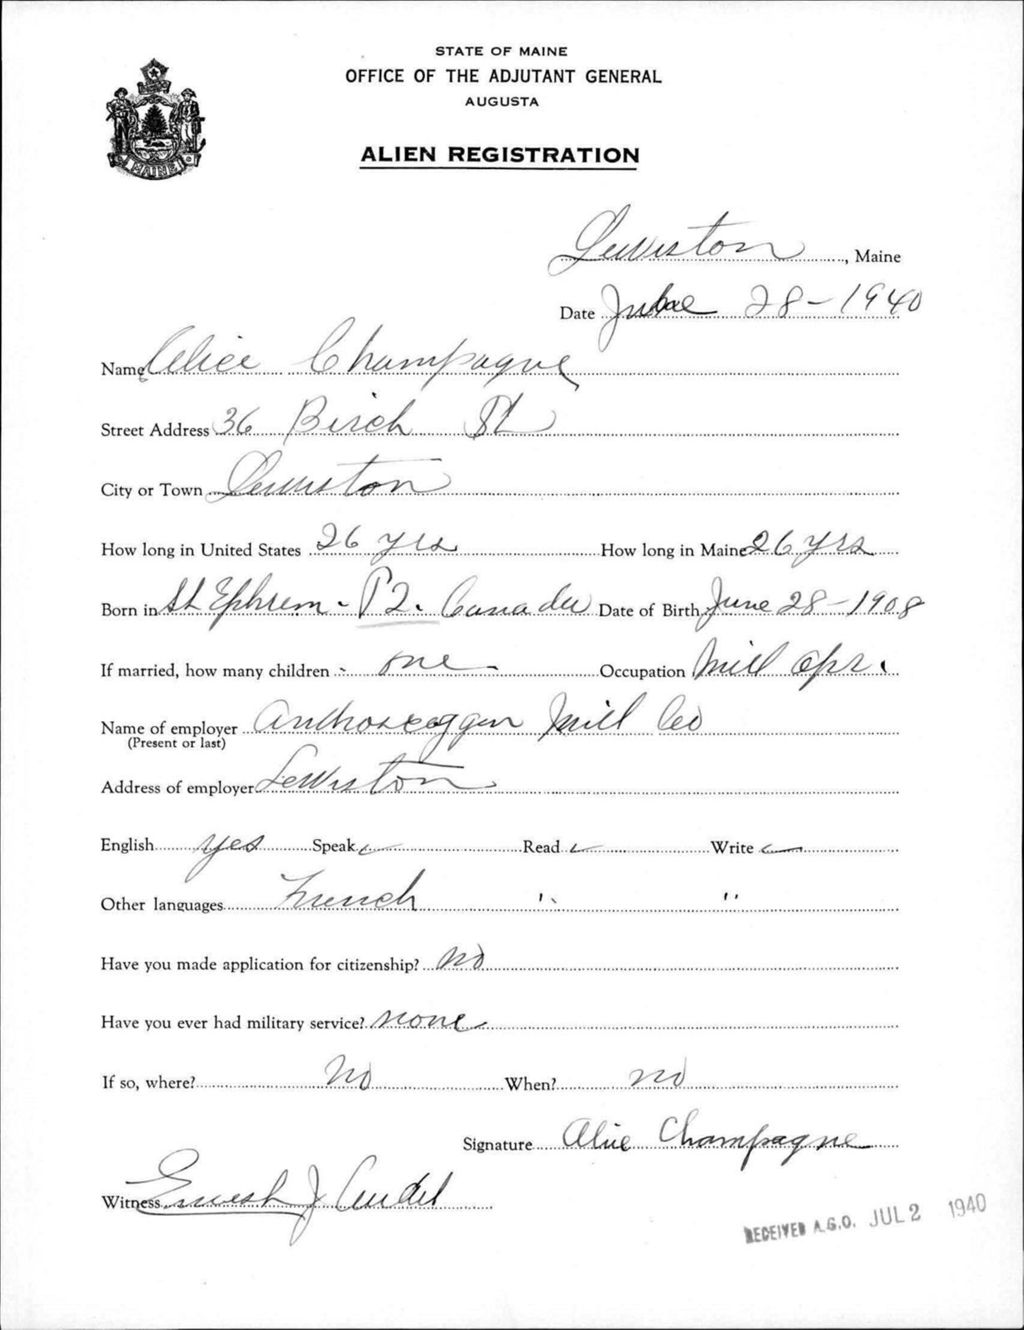 STATE OF MAINE
OFFICE OF THE ADJUTANT GENERAL
AUGUSTA
ALIEN REGISTRATION
MAINE
Lewiston, Maine
Date June 28 - 1940
Name Alice Champagne
Street Address 36 Birch St
City or Town Lewiston
How long in United States 26 yrs How long in Maine 26 yrs
Born in St Ephrem - P2. Canada Date of Birth June 28 - 1908
If married, how many children - one - Occupation Mill opr.
Name of employer Androscoggin Mill Co
(Present or last)
Address of employer Lewiston
English yes Speak ✓ Read ✓ Write ✓
Other languages French " "
Have you made application for citizenship? No
Have you ever had military service? none
If so, where? No When? no
Signature Alice Champagne
Witness J
RECEIVED A.G.O. JUL 2 1940